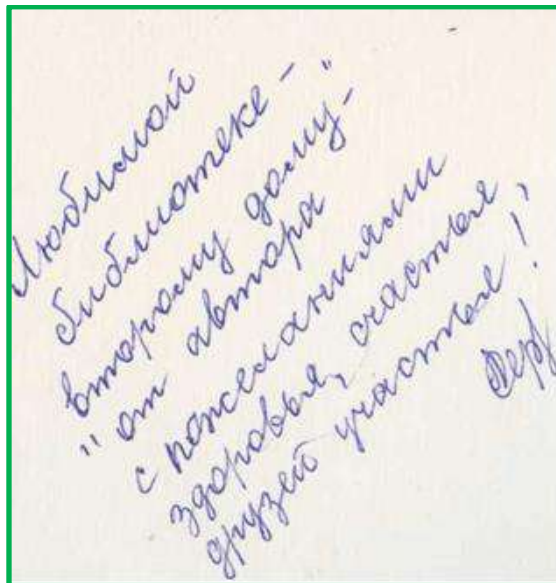 Любимой
библиотеке -
"второму дому" -
от автора
с пожеланиями
здоровья, счастья,
друзей участья!